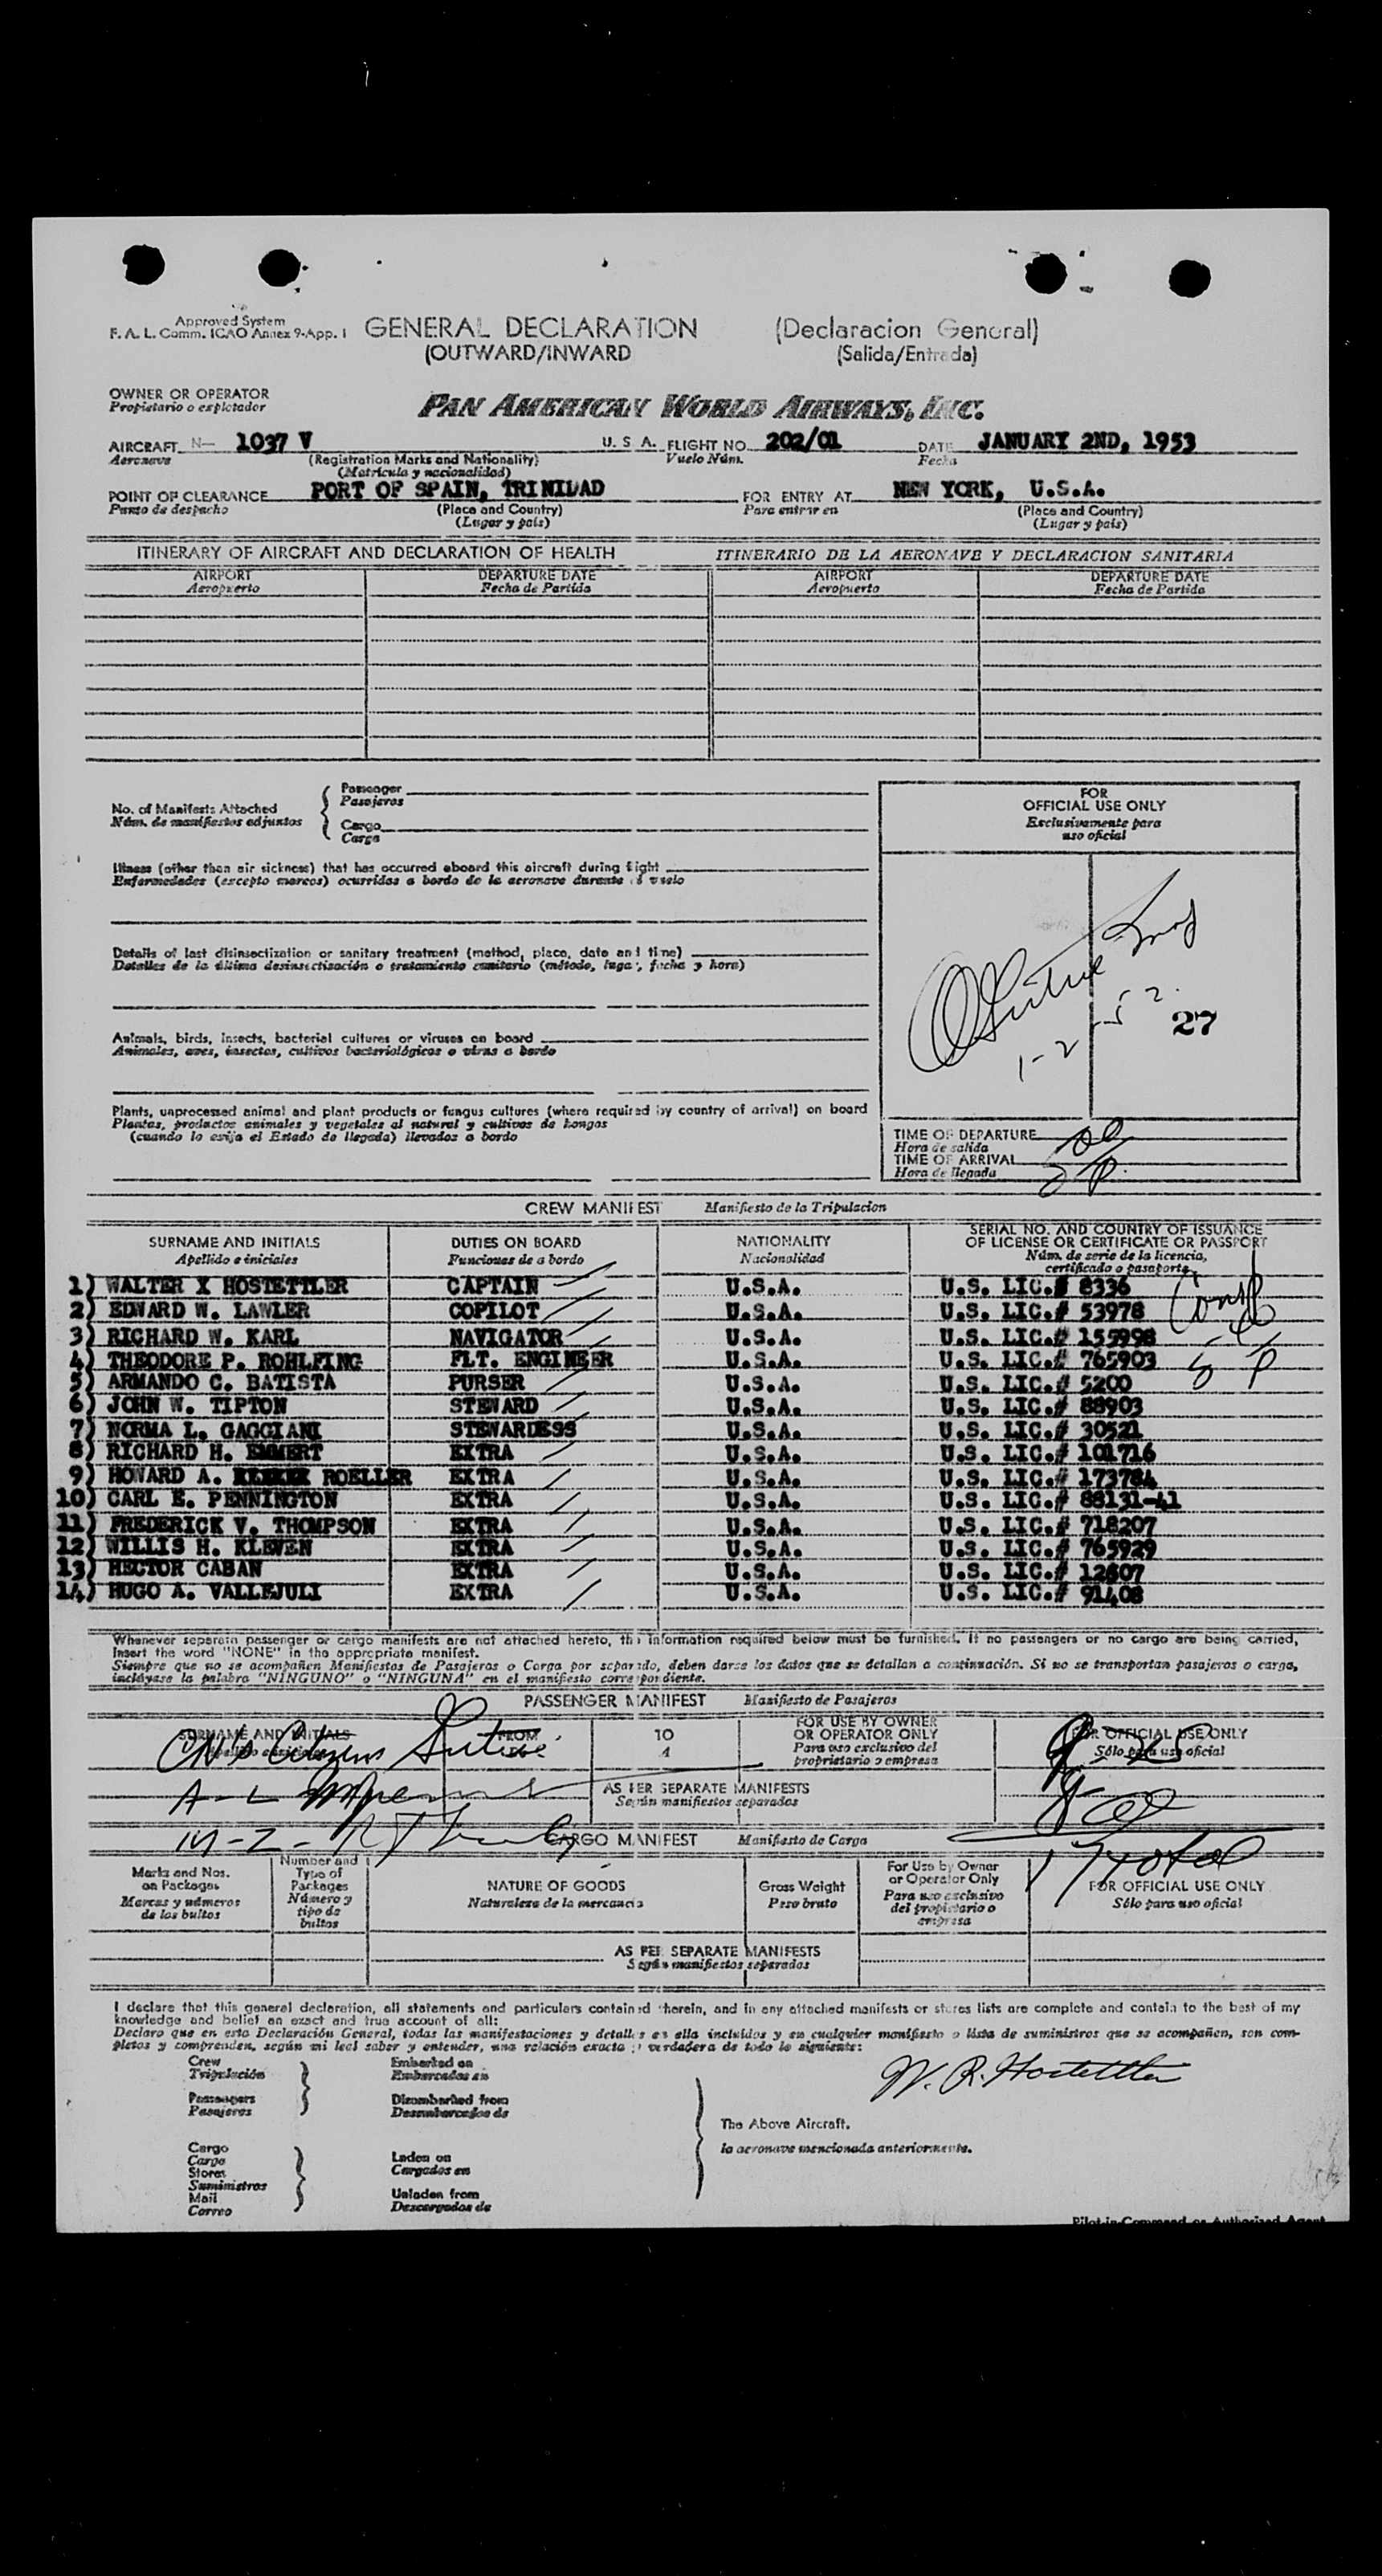 Approved System
F. A. L. Comm. ICAO Annex 9-App. 1
GENERAL DECLARATION (Declaracion General)
(OUTWARD/INWARD (Salida/Entrada)
OWNER OR OPERATOR
Propietario o explotador
PAN AMERICAN WORLD AIRWAYS, INC.
AIRCRAFT N— 1037 V U. S. A. FLIGHT NO. 202/01 DATE JANUARY 2ND, 1953
Aeronave (Registration Marks and Nationality) Vuelo Núm. Fecha
(Matrícula y nacionalidad)
POINT OF CLEARANCE PORT OF SPAIN, TRINIDAD FOR ENTRY AT NEW YORK, U.S.A.
Punto de despacho (Place and Country) Para entrar en (Place and Country)
(Lugar y país) (Lugar y país)
ITINERARY OF AIRCRAFT AND DECLARATION OF HEALTH ITINERARIO DE LA AERONAVE Y DECLARACION SANITARIA
AIRPORT DEPARTURE DATE AIRPORT DEPARTURE DATE
Aeropuerto Fecha de Partida Aeropuerto Fecha de Partida
No. of Manifests Attached
Núm. de manifiestos adjuntos
Passenger
Pasajeros
Cargo
Carga
FOR
OFFICIAL USE ONLY
Exclusivamente para
uso oficial
Illness (other than air sickness) that has occurred aboard this aircraft during flight
Enfermedades (excepto mareos) ocurridas a bordo de la aeronave durante el vuelo
Details of last disinsectization or sanitary treatment (method, place, date and time)
Detalles de la última desinsectización o tratamiento sanitario (método, lugar, fecha y hora)
27
Animals, birds, insects, bacterial cultures or viruses on board
Animales, aves, insectos, cultivos bacteriológicos o virus a bordo
1-2
Plants, unprocessed animal and plant products or fungus cultures (where required by country of arrival) on board
Plantas, productos animales y vegetales al natural y cultivos de hongos
(cuando lo exija el Estado de llegada) llevados a bordo
TIME OF DEPARTURE
Hora de salida
TIME OF ARRIVAL
Hora de llegada
CREW MANIFEST Manifiesto de la Tripulacion
SURNAME AND INITIALS DUTIES ON BOARD NATIONALITY SERIAL NO. AND COUNTRY OF ISSUANCE
OF LICENSE OR CERTIFICATE OR PASSPORT
Apellido e iniciales Funciones de a bordo Nacionalidad Núm. de serie de la licencia,
certificado o pasaporte
1) WALTER X HOSTETTLER CAPTAIN U.S.A. U.S. LIC.# 8336
2) EDWARD W. LAWLER COPILOT U.S.A. U.S. LIC.# 53978
3) RICHARD W. KARL NAVIGATOR U.S.A. U.S. LIC.# 155998
4) THEODORE P. ROHLFING FLT. ENGINEER U.S.A. U.S. LIC.# 765903
5) ARMANDO C. BATISTA PURSER U.S.A. U.S. LIC.# 5200
6) JOHN W. TIPTON STEWARD U.S.A. U.S. LIC.# 88903
7) NORMA L. GAGGIANI STEWARDESS U.S.A. U.S. LIC.# 30521
8) RICHARD H. EMMERT EXTRA U.S.A. U.S. LIC.# 101716
9) HOWARD A. ROELLER EXTRA U.S.A. U.S. LIC.# 173784
10) CARL E. PENNINGTON EXTRA U.S.A. U.S. LIC.# 88131-41
11) FREDERICK V. THOMPSON EXTRA U.S.A. U.S. LIC.# 718207
12) WILLIS H. KLEVEN EXTRA U.S.A. U.S. LIC.# 765929
13) HECTOR CABAN EXTRA U.S.A. U.S. LIC.# 12607
14) HUGO A. VALLEJULI EXTRA U.S.A. U.S. LIC.# 91408
Whenever separate passenger or cargo manifests are not attached hereto, the information required below must be furnished. If no passengers or no cargo are being carried,
insert the word "NONE" in the appropriate manifest.
Siempre que no se acompañen Manifiestos de Pasajeros o Carga por separado, deben darse los datos que se detallan a continuación. Si no se transportan pasajeros o carga,
inclúyase la palabra "NINGUNO" o "NINGUNA" en el manifiesto correspondiente.
PASSENGER MANIFEST Manifiesto de Pasajeros
SURNAME AND INITIALS FROM TO FOR USE BY OWNER
OR OPERATOR ONLY FOR OFFICIAL USE ONLY
Para uso exclusivo del
propietario o empresa
Sólo para uso oficial
US Citizens
AS PER SEPARATE MANIFESTS
Según manifiestos separados
CARGO MANIFEST Manifiesto de Carga
17 total
Marks and Nos.
on Packages
Marcas y números
de los bultos
Number and
Type of
Packages
Número y
tipo de
bultos
NATURE OF GOODS
Naturaleza de la mercancía
Gross Weight
Peso bruto
For Use by Owner
or Operator Only
Para uso exclusivo
del propietario o
empresa
FOR OFFICIAL USE ONLY
Sólo para uso oficial
AS PER SEPARATE MANIFESTS
Según manifiestos separados
I declare that this general declaration, all statements and particulars contained therein, and in any attached manifests or stores lists are complete and contain to the best of my
knowledge and belief an exact and true account of all:
Declaro que en esta Declaración General, todas las manifestaciones y detalles en ella incluidos y en cualquier manifiesto o lista de suministros que se acompañen, son com-
pletos y comprenden, según mi leal saber y entender, una relación exacta y verdadera de todo lo siguiente:
Crew
Tripulación
Passengers
Pasajeros
Embarked on
Embarcados en
Disembarked from
Desembarcados de
W. R. Hostettler
The Above Aircraft.
la aeronave mencionada anteriormente.
Cargo
Carga
Stores
Suministros
Mail
Correo
Laden on
Cargados en
Unladen from
Descargados de
Pilot-in-Command or Authorized Agent